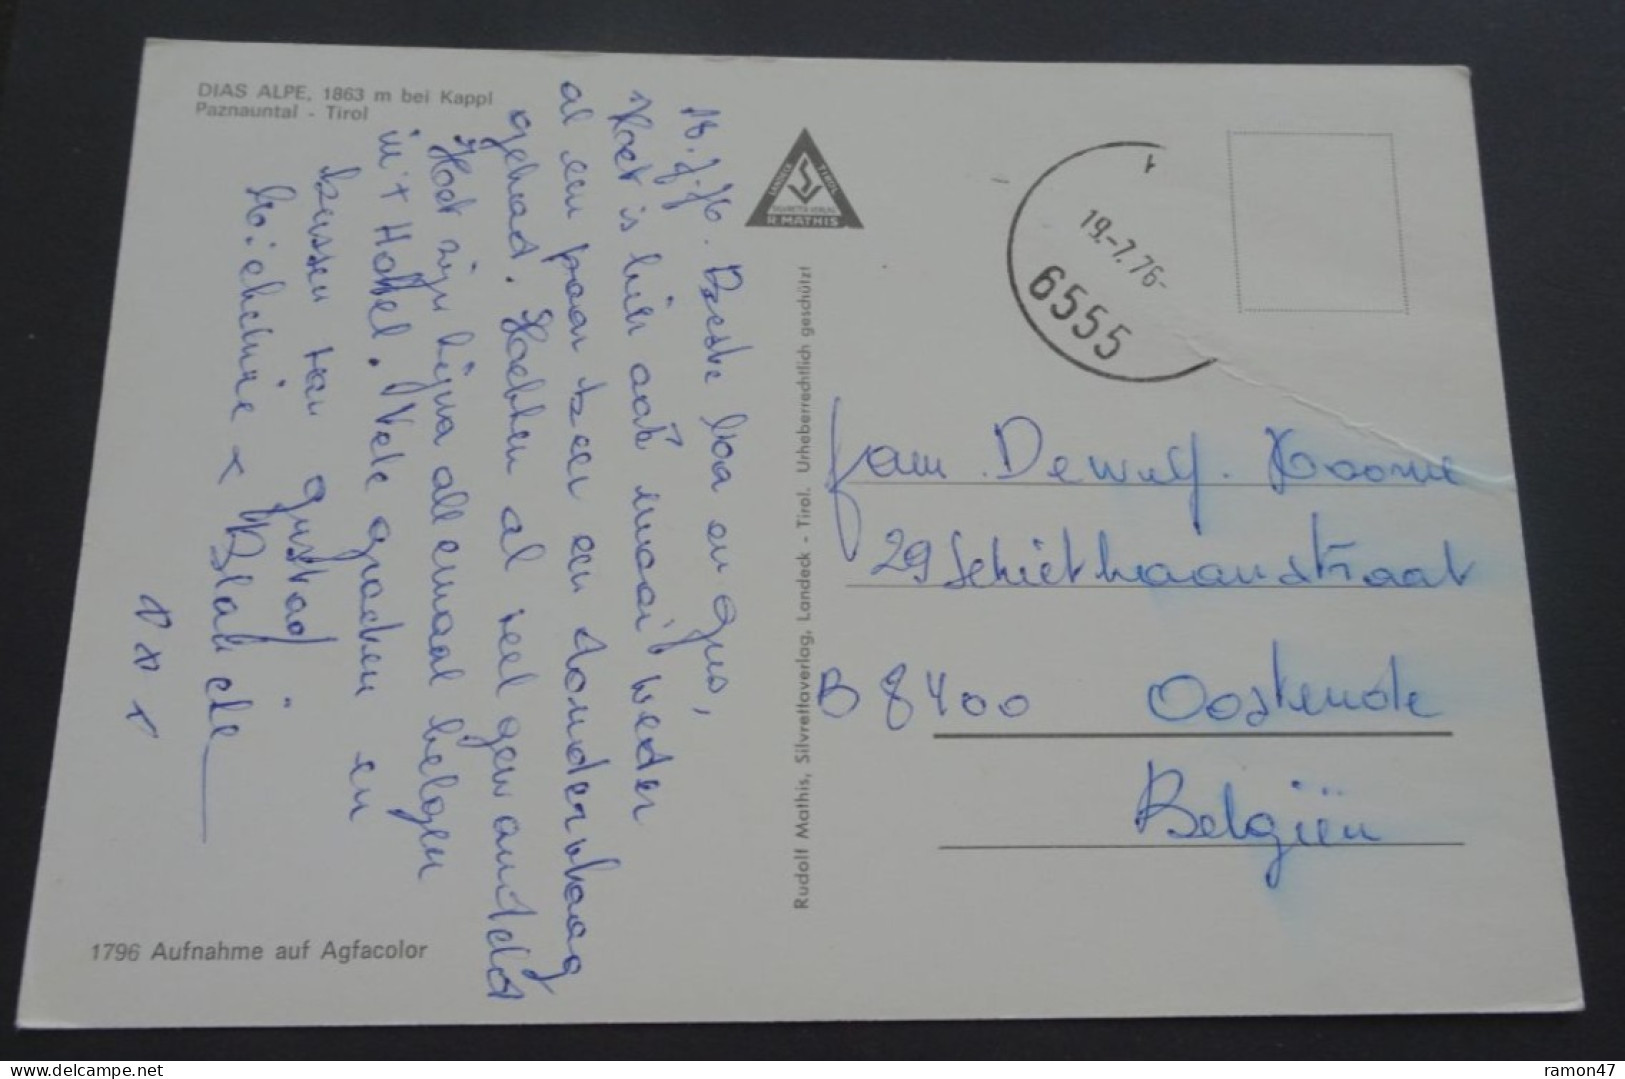 DIAS ALPE, 1863 m bei Kappl
Paznauntal - Tirol
16.7.76. Beste Iva en Gus,
Het is hier ook mooi weder
al een paar keer een dondervlaag
gehad. Hebben al veel gewandeld
Het zijn bijna allemaal belgen
in 't Hotel. Vele groeten en
kussen van gustaaf
Michelinne x Blanche
x x x
1796 Aufnahme auf Agfacolor
LANDECK TIROL
SILVRETTA VERLAG
R. MATHIS
Rudolf Mathis, Silvrettaverlag, Landeck - Tirol. Urheberrechtlich geschützt
19.-7.76-
6555
fam. Dewulf.
29 Schietbaanstraat
B 8400 Oostende
Belgiën
delcampe.net
ramon47